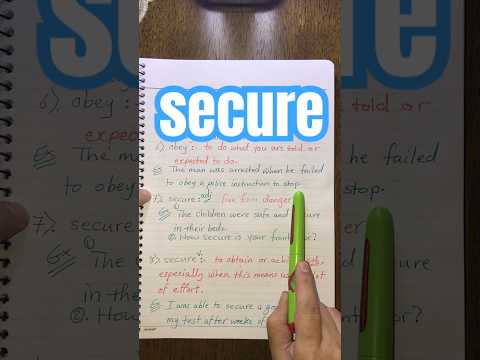 secure
6). obey :- to do what you are told or
expected to do.
Ex The man was arrested when he failed
to obey a police instruction to stop.
7). secure: adj free from danger
Ex ①. The children were safe and secure
in their beds.
②. How secure is your front ?
8). secure v. :- to obtain or achieve
especially when this means lot
of effort.
Ex I was able to secure a
my test after weeks of
6). obey :
told or
expected
Ex The man
he failed
to obey
stop.
7). secure:
Ex ①
The
cure
in their
②. How
?